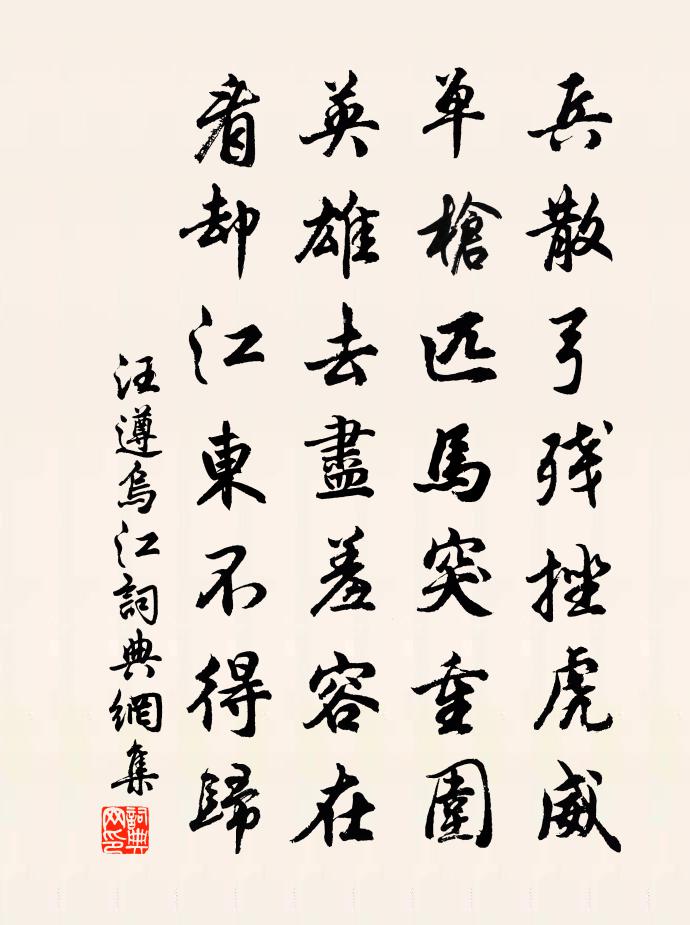 兵散弓残挫虎威
单槍匹馬突重圍
英雄去盡羞容在
看却江東不得歸
汪遵烏江詞典網集
詞典网印